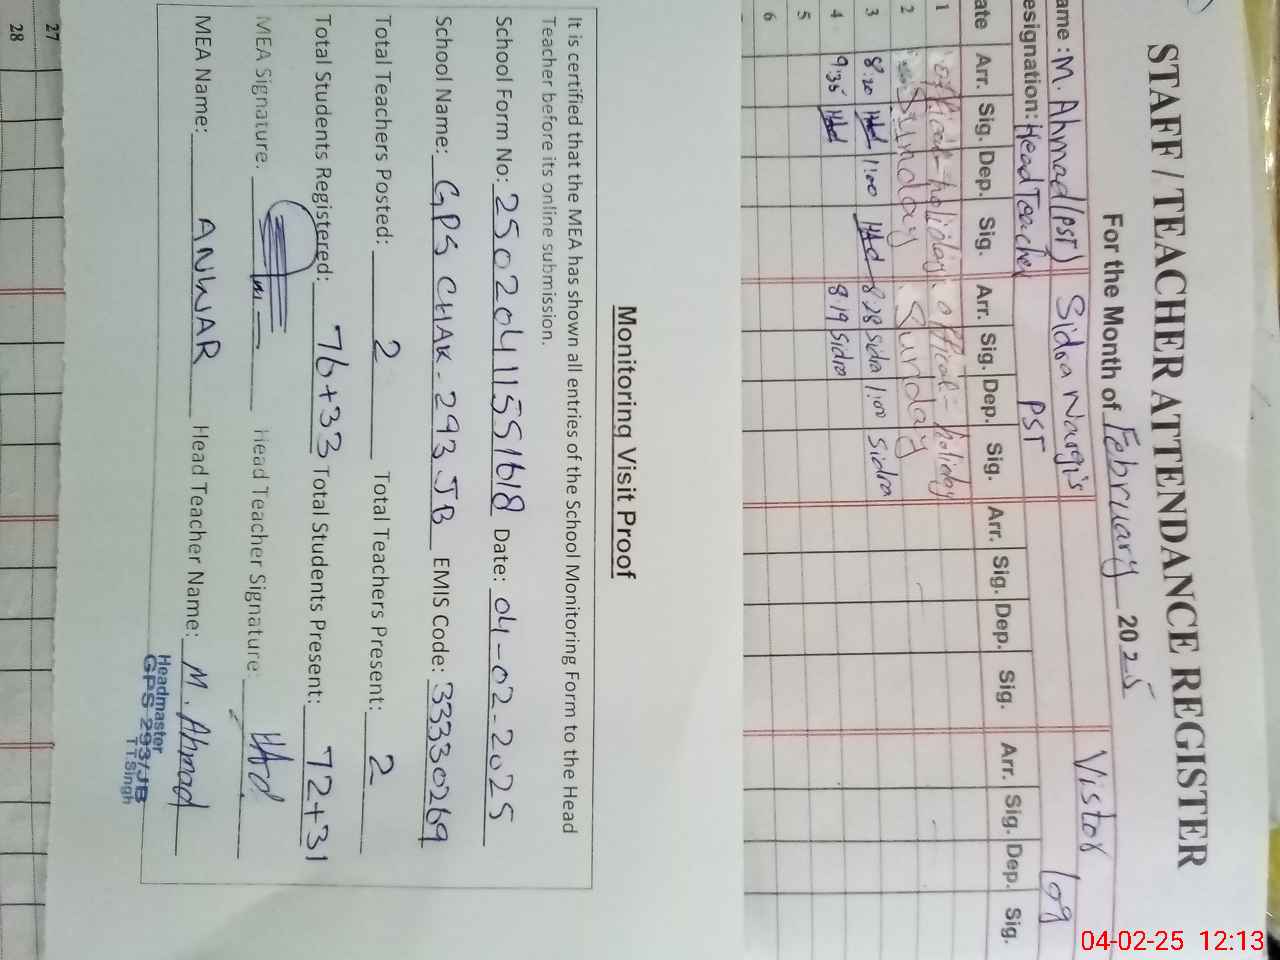 STAFF / TEACHER ATTENDANCE REGISTER
For the Month of February 2025
ame : M. Ahmad (PST) Sidra Nargis Vistor
esignation: Head Teacher PST log
ate Arr. Sig. Dep. Sig. Arr. Sig. Dep. Sig. Arr. Sig. Dep. Sig. Arr. Sig. Dep. Sig.
1 offical = holiday offical = holiday
2 Sunday Sunday
3 8:20 1:00 8:28 Sidra 1:00 Sidra
4 9:35 8:19 Sidra
5
6
Monitoring Visit Proof
It is certified that the MEA has shown all entries of the School Monitoring Form to the Head
Teacher before its online submission.
School Form No: 25020411551618 Date: 04-02-2025
School Name: GPS CHAK-293 JB EMIS Code: 33330269
Total Teachers Posted: 2 Total Teachers Present: 2
Total Students Registered: 76+33 Total Students Present: 72+31
MEA Signature: Head Teacher Signature:
MEA Name: ANWAR Head Teacher Name: M. Ahmad
Headmaster
GPS 293/JB
T.T.Singh
27
28
04-02-25 12:13